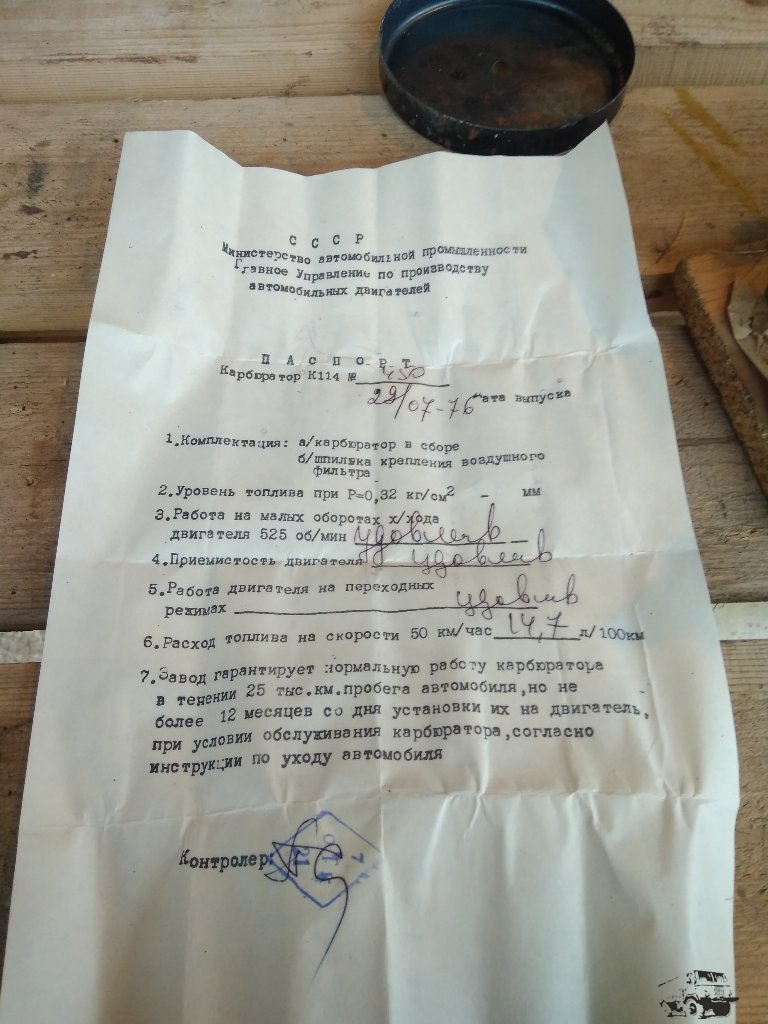 С С С Р
Министерство автомобильной промышленности
Главное Управление по производству
автомобильных двигателей
П А С П О Р Т
Карбюратор К114 № 450
29/07-76 дата выпуска
1.Комплектация: а/карбюратор в сборе
б/шпилька крепления воздушного
фильтра
2.Уровень топлива при Р=0,32 кг/см² - мм
3.Работа на малых оборотах х/хода
двигателя 525 об/мин удовлетв
4.Приемистость двигателя удовлетв
5.Работа двигателя на переходных
режимах удовлтв
6.Расход топлива на скорости 50 км/час 14,7 л/100км
7.Завод гарантирует нормальную работу карбюратора
в течении 25 тыс.км.пробега автомобиля,но не
более 12 месяцев со дня установки их на двигатель,
при условии обслуживания карбюратора,согласно
инструкции по уходу автомобиля
Контролер:
ОТК
21